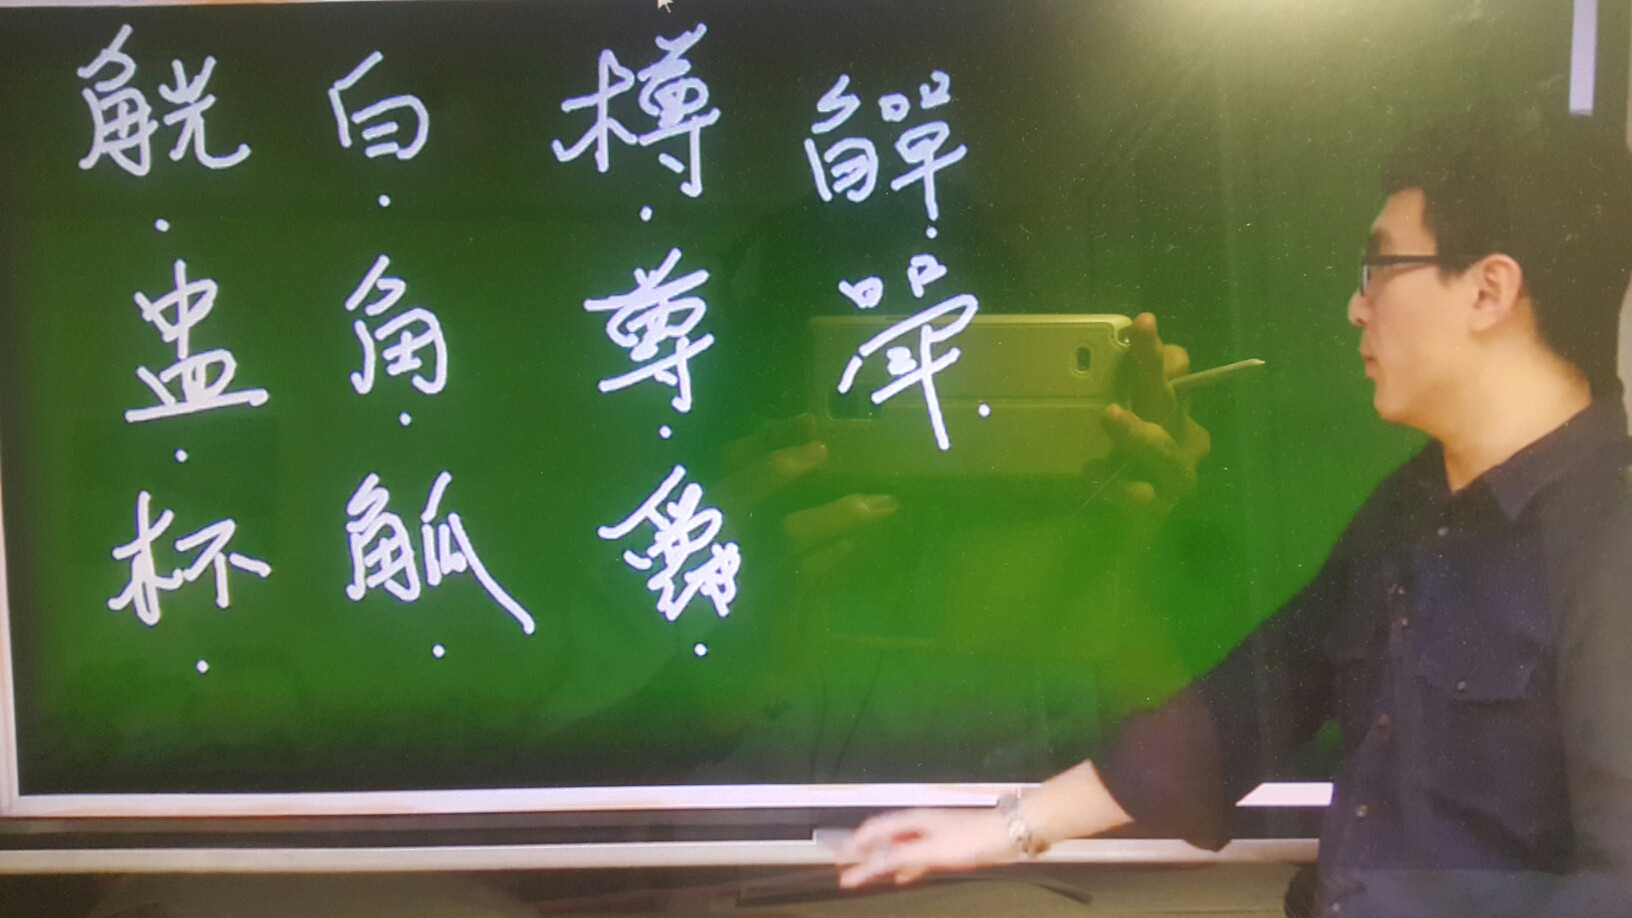 觥·盅·杯·
白·角·觚·
樽·尊·爵·
觶·斝·